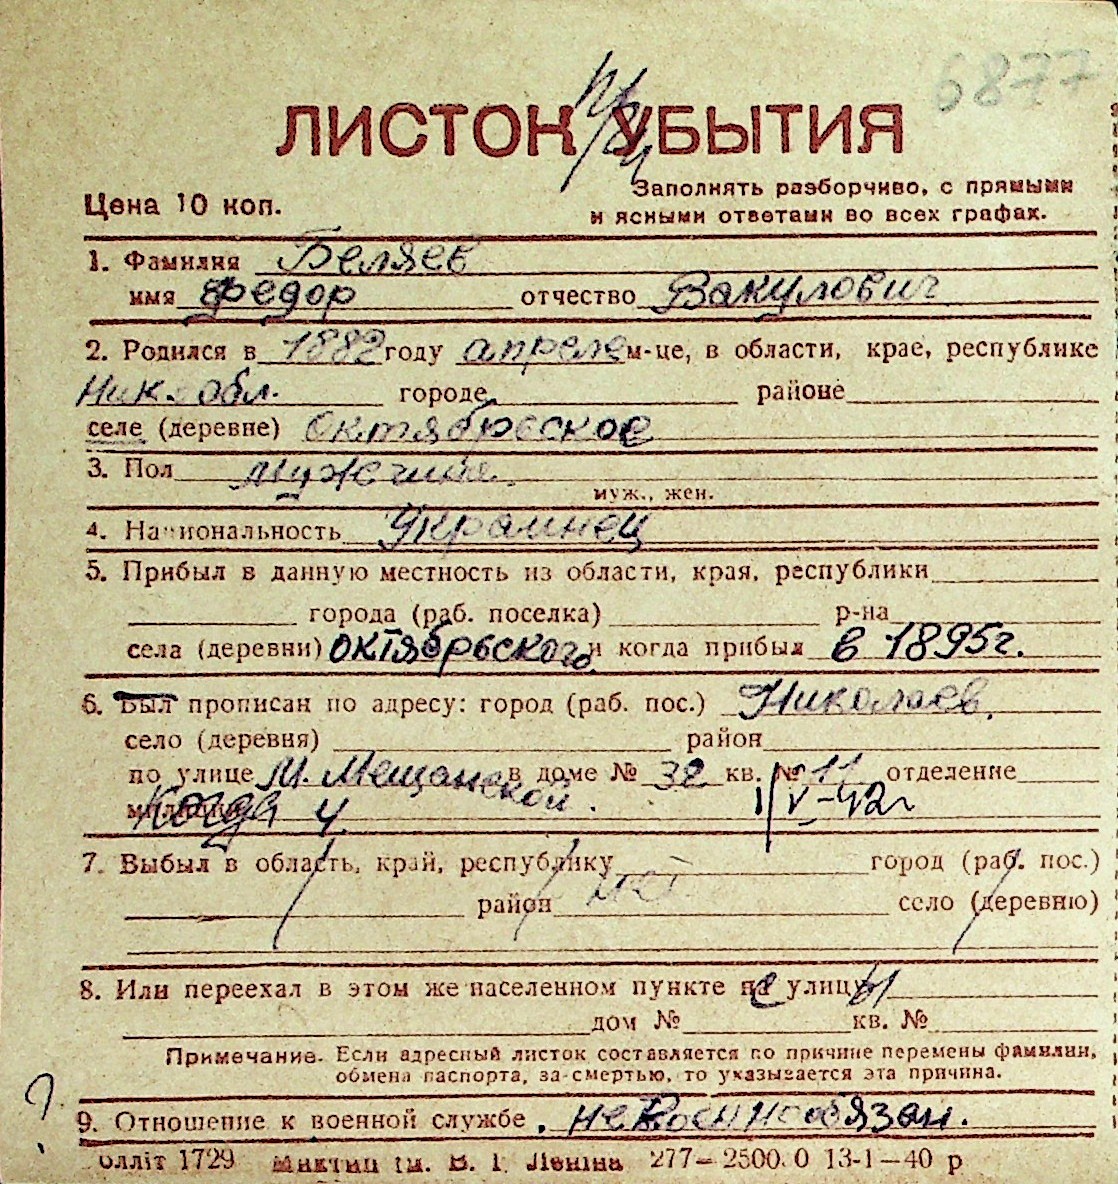 6877
ЛИСТОК УБЫТИЯ
Цена 10 коп.
Заполнять разборчиво, с прямыми
и ясными ответами во всех графах.
1. Фамилия Беляев
имя Федор отчество Вакулович
2. Родился в 1882 году апреле м-це, в области, крае, республике
Ник. обл. городе районе
селе (деревне) Октябрьское
3. Пол мужчина
муж., жен.
4. Национальность Украинец
5. Прибыл в данную местность из области, края, республики
города (раб. поселка) р-на
села (деревни) октябрьского и когда прибыл в 1895г.
6. Был прописан по адресу: город (раб. пос.) Николаев.
село (деревня) район
по улице М. Мещанской в доме № 32 кв. № 11 отделение
милиции Когда 1/V-42г
7. Выбыл в область, край, республику город (раб. пос.)
район село (деревню)
8. Или переехал в этом же населенном пункте с улицы
дом № кв. №
Примечание. Если адресный листок составляется по причине перемены фамилии,
обмена паспорта, за смертью, то указывается эта причина.
?
9. Отношение к военной службе невоеннообязан.
Облліт 1729 ім. В. І. Леніна 277—2500.0 13-1—40 р